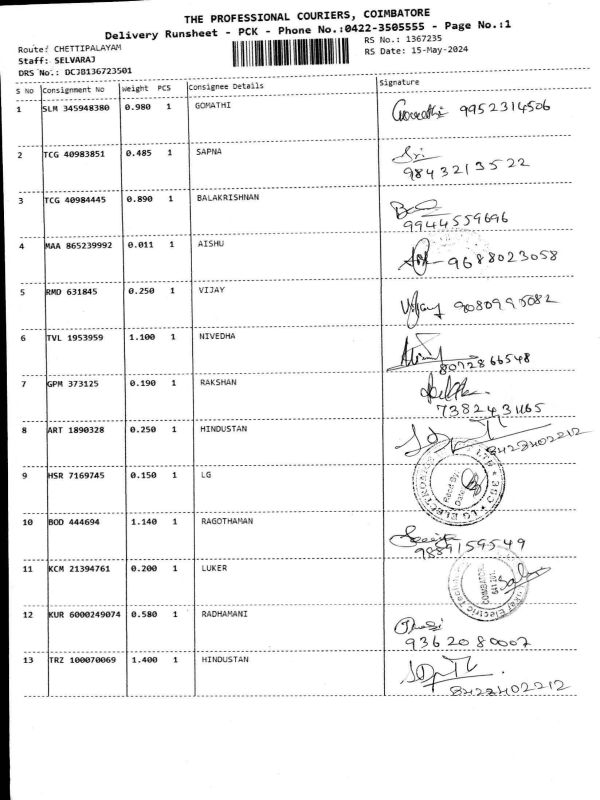 THE PROFESSIONAL COURIERS, COIMBATORE
Delivery Runsheet - PCK - Phone No.:0422-3505555 - Page No.:1
Route: CHETTIPALAYAM
RS No.: 1367235
Staff: SELVARAJ
RS Date: 15-May-2024
DRS No.: DCJB136723501
S No Consignment No Weight PCS Consignee Details Signature
1 SLM 345948380 0.980 1 GOMATHI Gomathi 9952314506
2 TCG 40983851 0.485 1 SAPNA Sri
9843213522
3 TCG 40984445 0.890 1 BALAKRISHNAN
9944559696
4 MAA 865239992 0.011 1 AISHU 9688023058
5 RMD 631845 0.250 1 VIJAY Vijay 9080995082
6 TVL 1953959 1.100 1 NIVEDHA
8072866548
7 GPM 373125 0.190 1 RAKSHAN
7382431165
8 ART 1890328 0.250 1 HINDUSTAN
8428402212
9 HSR 7169745 0.150 1 LG
LG ELECTRO
Recd By
Date
10 BOD 444694 1.140 1 RAGOTHAMAN
9889159549
11 KCM 21394761 0.200 1 LUKER
COIMBATORE
641 201
Electric
12 KUR 6000249074 0.580 1 RADHAMANI
9362080007
13 TRZ 100070069 1.400 1 HINDUSTAN
8428402212